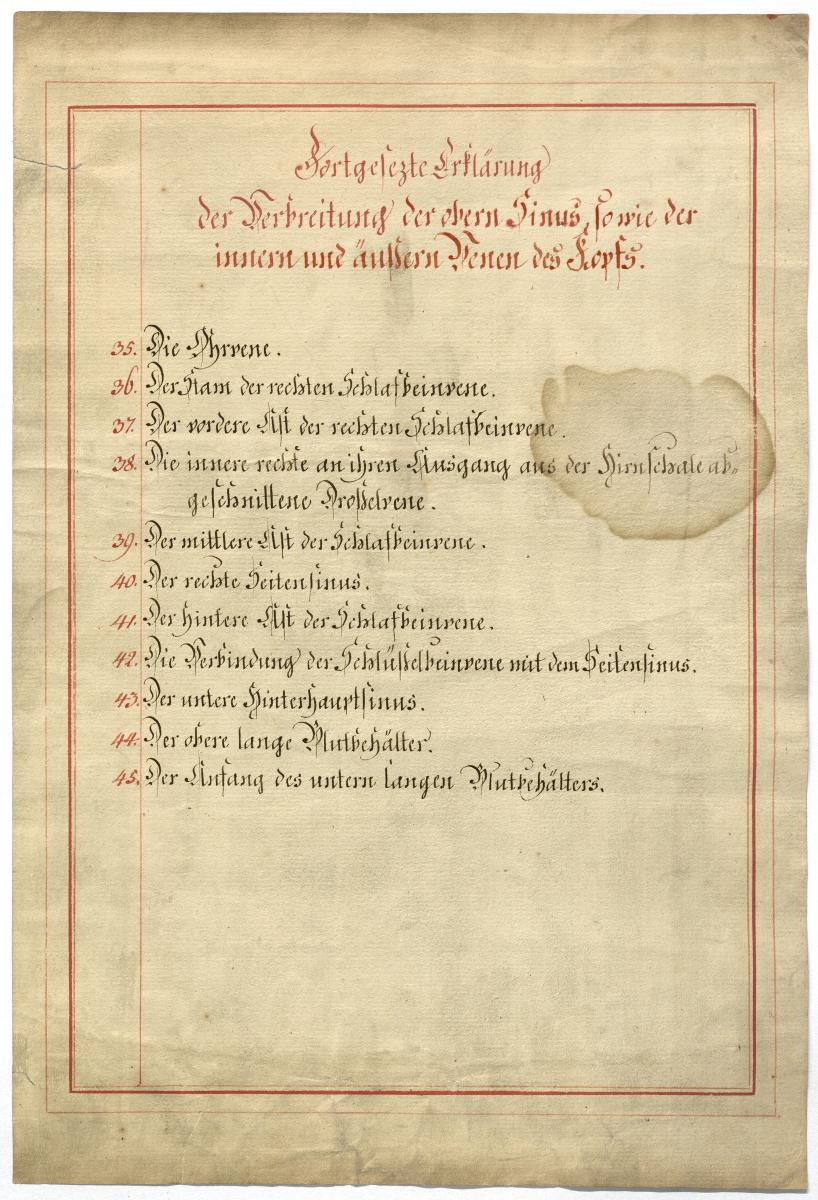 Fortgesezte Erklärung
der Verbreitung der obern Sinus, so wie der
innern und äußern Venen des Kopfs.
35. Die Ohrvene.
36. Der Stam der rechten Schlafbeinvene.
37. Der vordere Ast der rechten Schlafbeinvene.
38. Die innere rechte an ihren Ausgang aus der Hirnschale ab-
geschnittene Drosselvene.
39. Der mittlere Ast der Schlafbeinvene.
40. Der rechte Seitensinus.
41. Der hintere Ast der Schlafbeinvene.
42. Die Verbindung der Schlüsselbeinvene mit dem Seitensinus.
43. Der untere Hinterhauptsinus.
44. Der obere lange Blutbehälter.
45. Der Anfang des untern langen Blutbehälters.